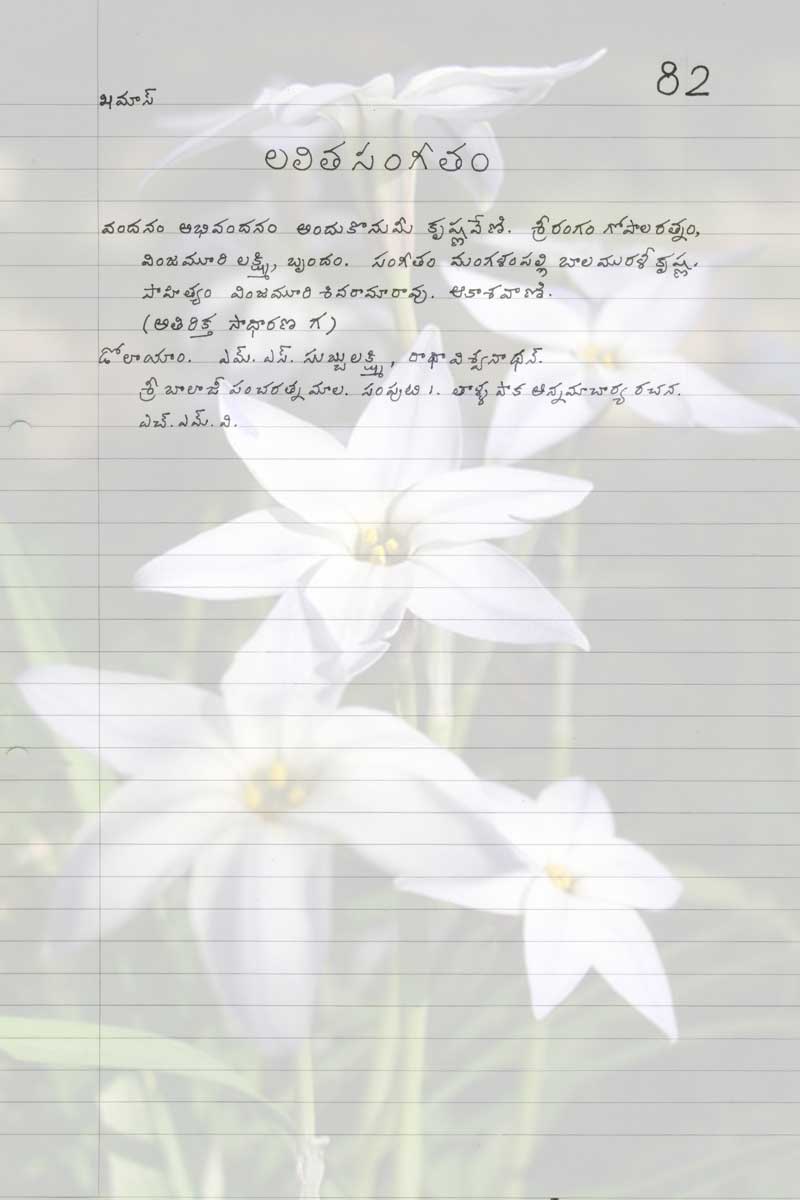 82
ఖమాస్
లలిత సంగీతం
వందనం అభివందనం అందుకొనుమీ కృష్ణవేణి. శ్రీరంగం గోపాలరత్నం,
వింజమూరి లక్ష్మి, బృందం. సంగీతం మంగళంపల్లి బాలమురళీకృష్ణ.
సాహిత్యం వింజమూరి శివరామారావు. ఆకాశవాణి.
(అతిరిక్త సాధారణ గ)
డోలాయాం. ఎమ్. ఎస్. సుబ్బులక్ష్మి, రాధావిశ్వనాథన్.
శ్రీ బాలాజీ పంచరత్నమాల. సంపుటి 1. తాళ్ళపాక అన్నమాచార్య రచన.
ఎచ్. ఎమ్. వి.